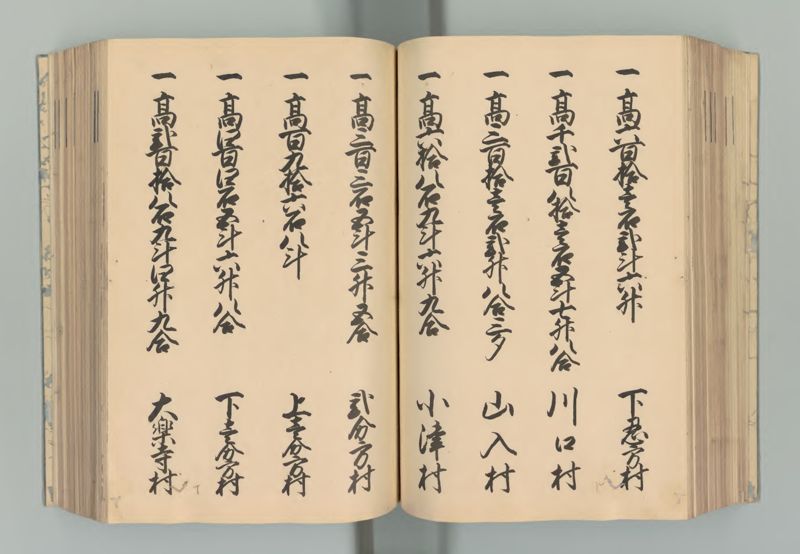 一 高六百拾壱石弐斗六升 下恩方村
一 高千弐百八拾壱石五斗七升八合 川口村
一 高三百拾壱石弐升八合三夕 山入村
一 高六拾八石九斗六升九合 小津村
一 高三百三石五斗三升五合 弐分方村
一 高百九拾六石八斗 上壱分方村
一 高四百四石五斗六升八合 下壱分方村
一 高弐百拾八石九斗四升九合 大楽寺村